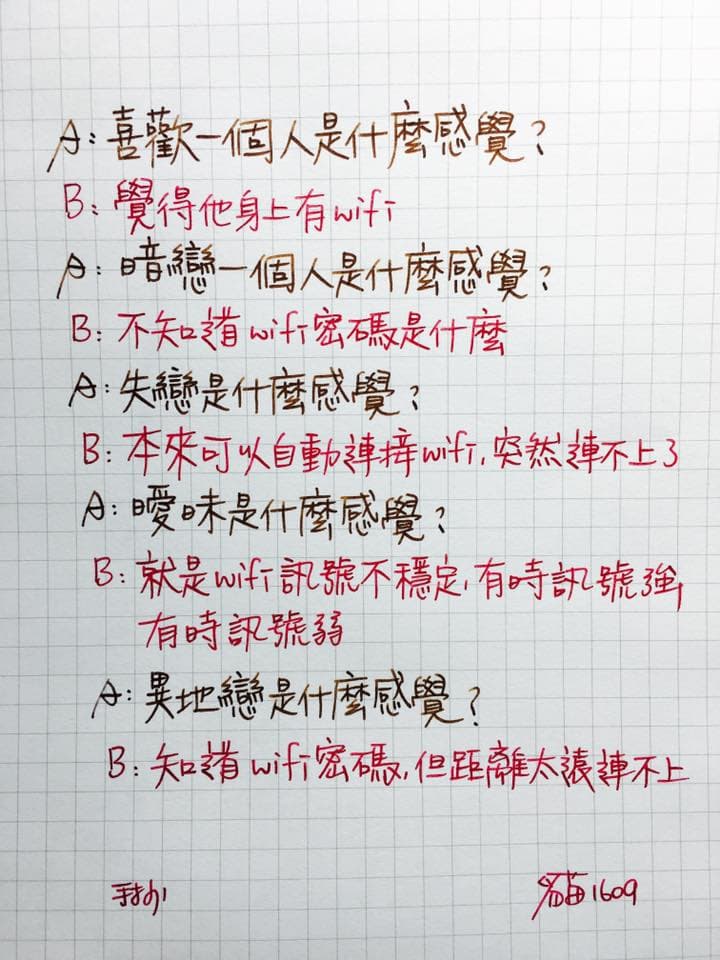 A：喜歡一個人是什麼感覺？
B：覺得他身上有wifi
A：暗戀一個人是什麼感覺？
B：不知道wifi密碼是什麼
A：失戀是什麼感覺？
B：本來可以自動連接wifi，突然連不上了
A：曖昧是什麼感覺？
B：就是wifi訊號不穩定，有時訊號強，
有時訊號弱
A：異地戀是什麼感覺？
B：知道wifi密碼，但距離太遠連不上
1609